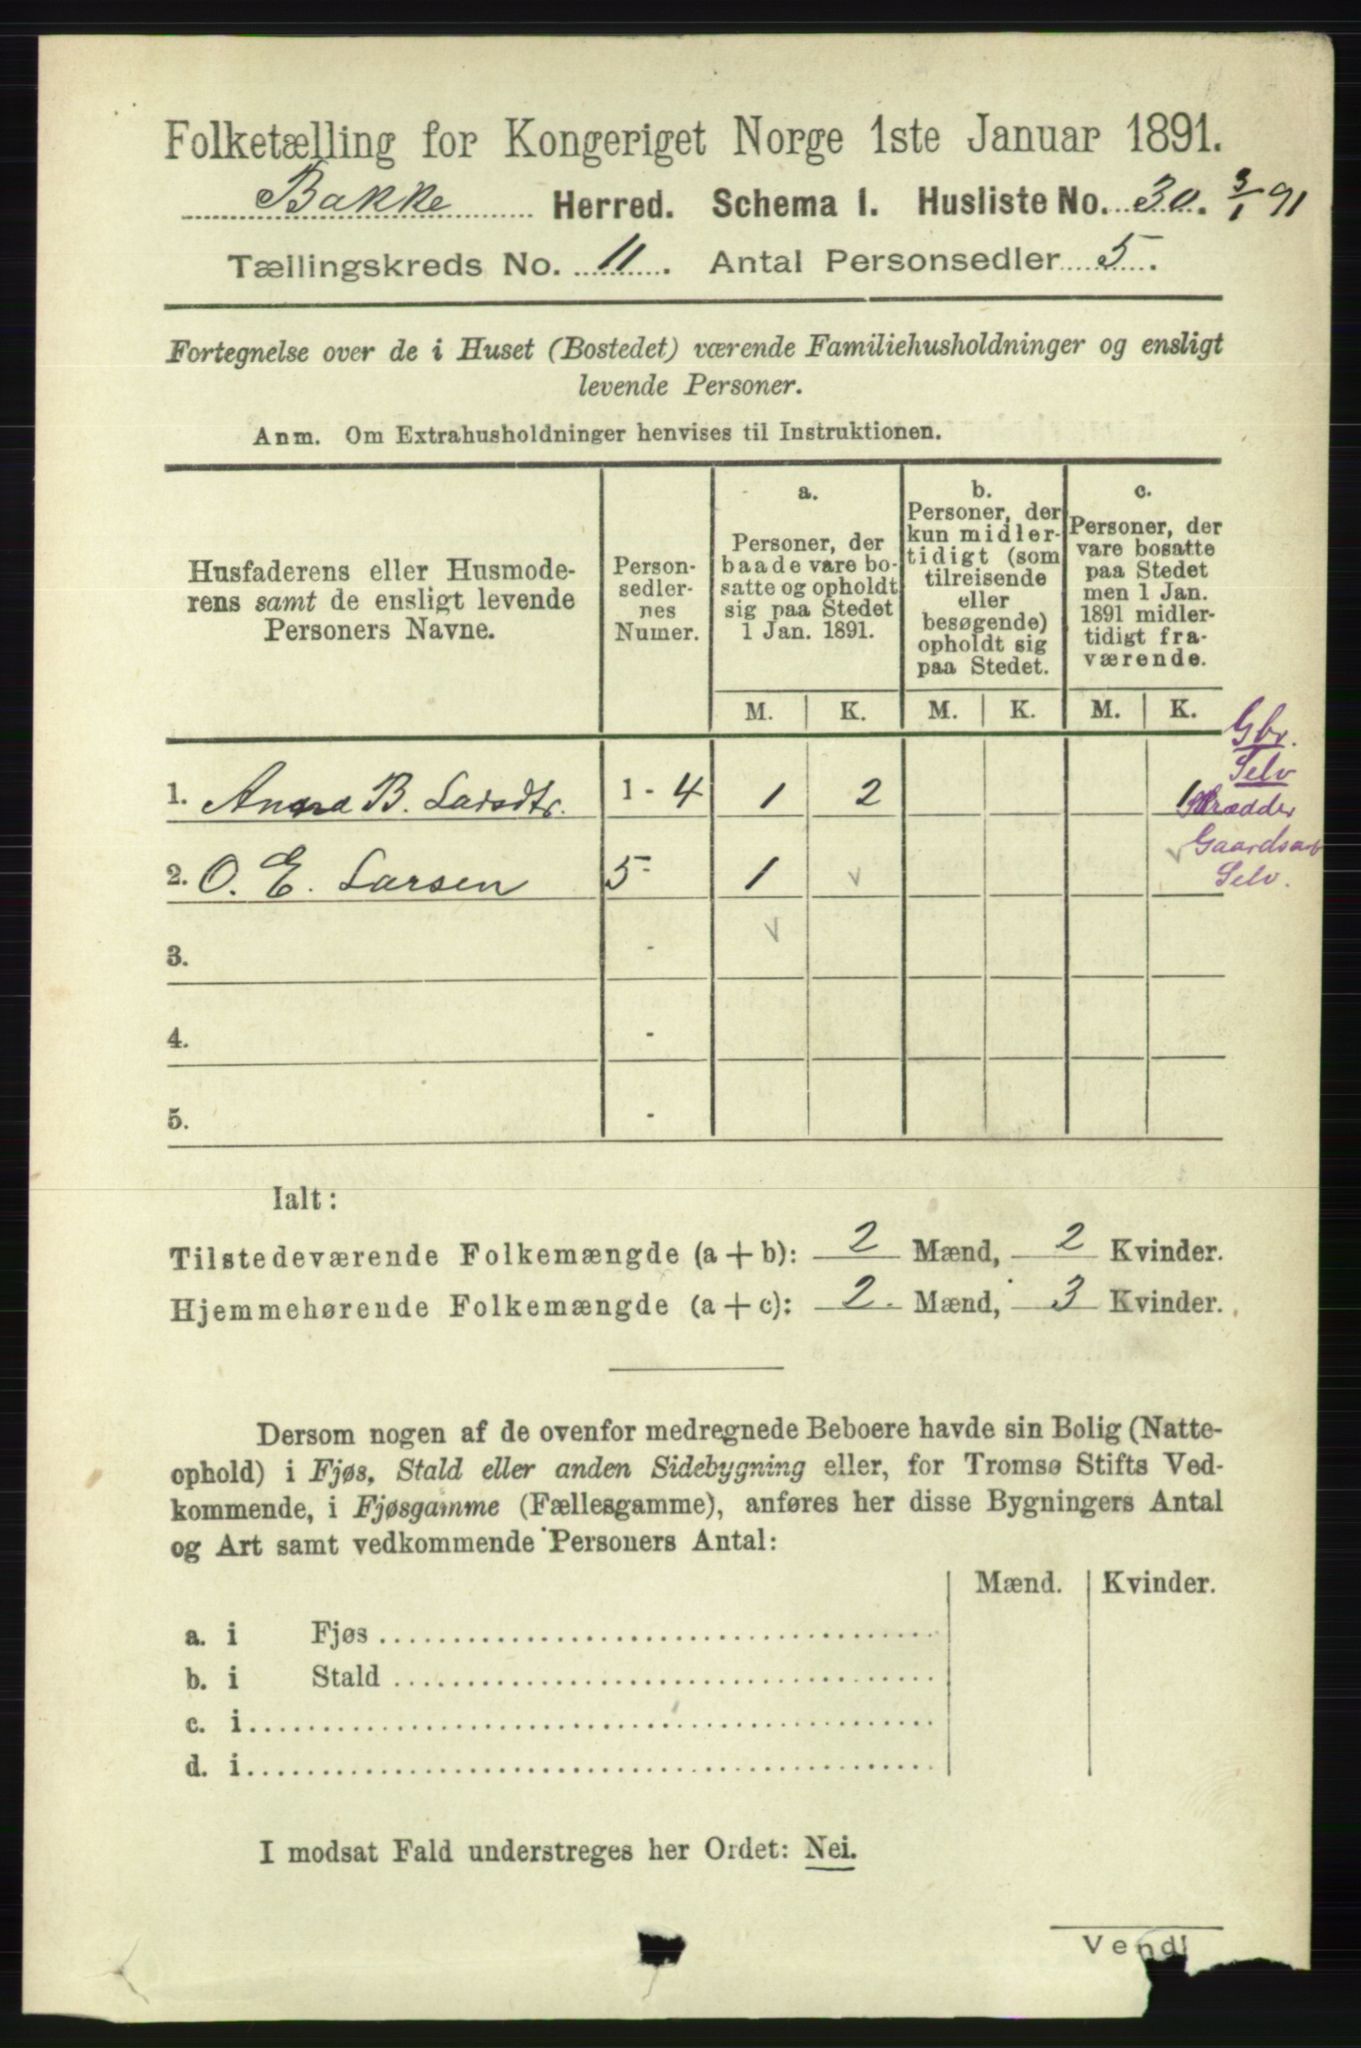 Folketælling for Kongeriget Norge 1ste Januar 1891.
Bakke Herred. Schema 1. Husliste No. 30. 3/1 91
Tællingskreds No. 11. Antal Personsedler 5.
Fortegnelse over de i Huset (Bostedet) værende Familiehusholdninger og ensligt
levende Personer.
Anm. Om Extrahusholdninger henvises til Instruktionen.
Husfaderens eller Husmode-
rens samt de ensligt levende
Personers Navne.
Person-
sedler-
nes
Numer.
a.
Personer, der
baade vare bo-
satte og opholdt
sig paa Stedet
1 Jan. 1891.
b.
Personer, der
kun midler-
tidigt (som
tilreisende
eller
besøgende)
opholdt sig
paa Stedet.
c.
Personer, der
vare bosatte
paa Stedet
men 1 Jan.
1891 midler-
tidigt fra-
værende.
M. K. M. K. M. K.
Gbr.
Selv
1. Anna B. Larsdtr. 1 - 4 1 2 1
Skrædder
Gaardsarb
2. O. E. Larsen 5 - 1
Selv.
3. -
4. -
5. -
Ialt:
Tilstedeværende Folkemængde (a + b): 2 Mænd, 2 Kvinder.
Hjemmehørende Folkemængde (a + c): 2. Mænd, 3 Kvinder.
Dersom nogen af de ovenfor medregnede Beboere havde sin Bolig (Natte-
ophold) i Fjøs, Stald eller anden Sidebygning eller, for Tromsø Stifts Ved-
kommende, i Fjøsgamme (Fællesgamme), anføres her disse Bygningers Antal
og Art samt vedkommende Personers Antal:
Mænd. Kvinder.
a. i Fjøs
b. i Stald
c. i
d. i
I modsat Fald understreges her Ordet: Nei.
Vend!